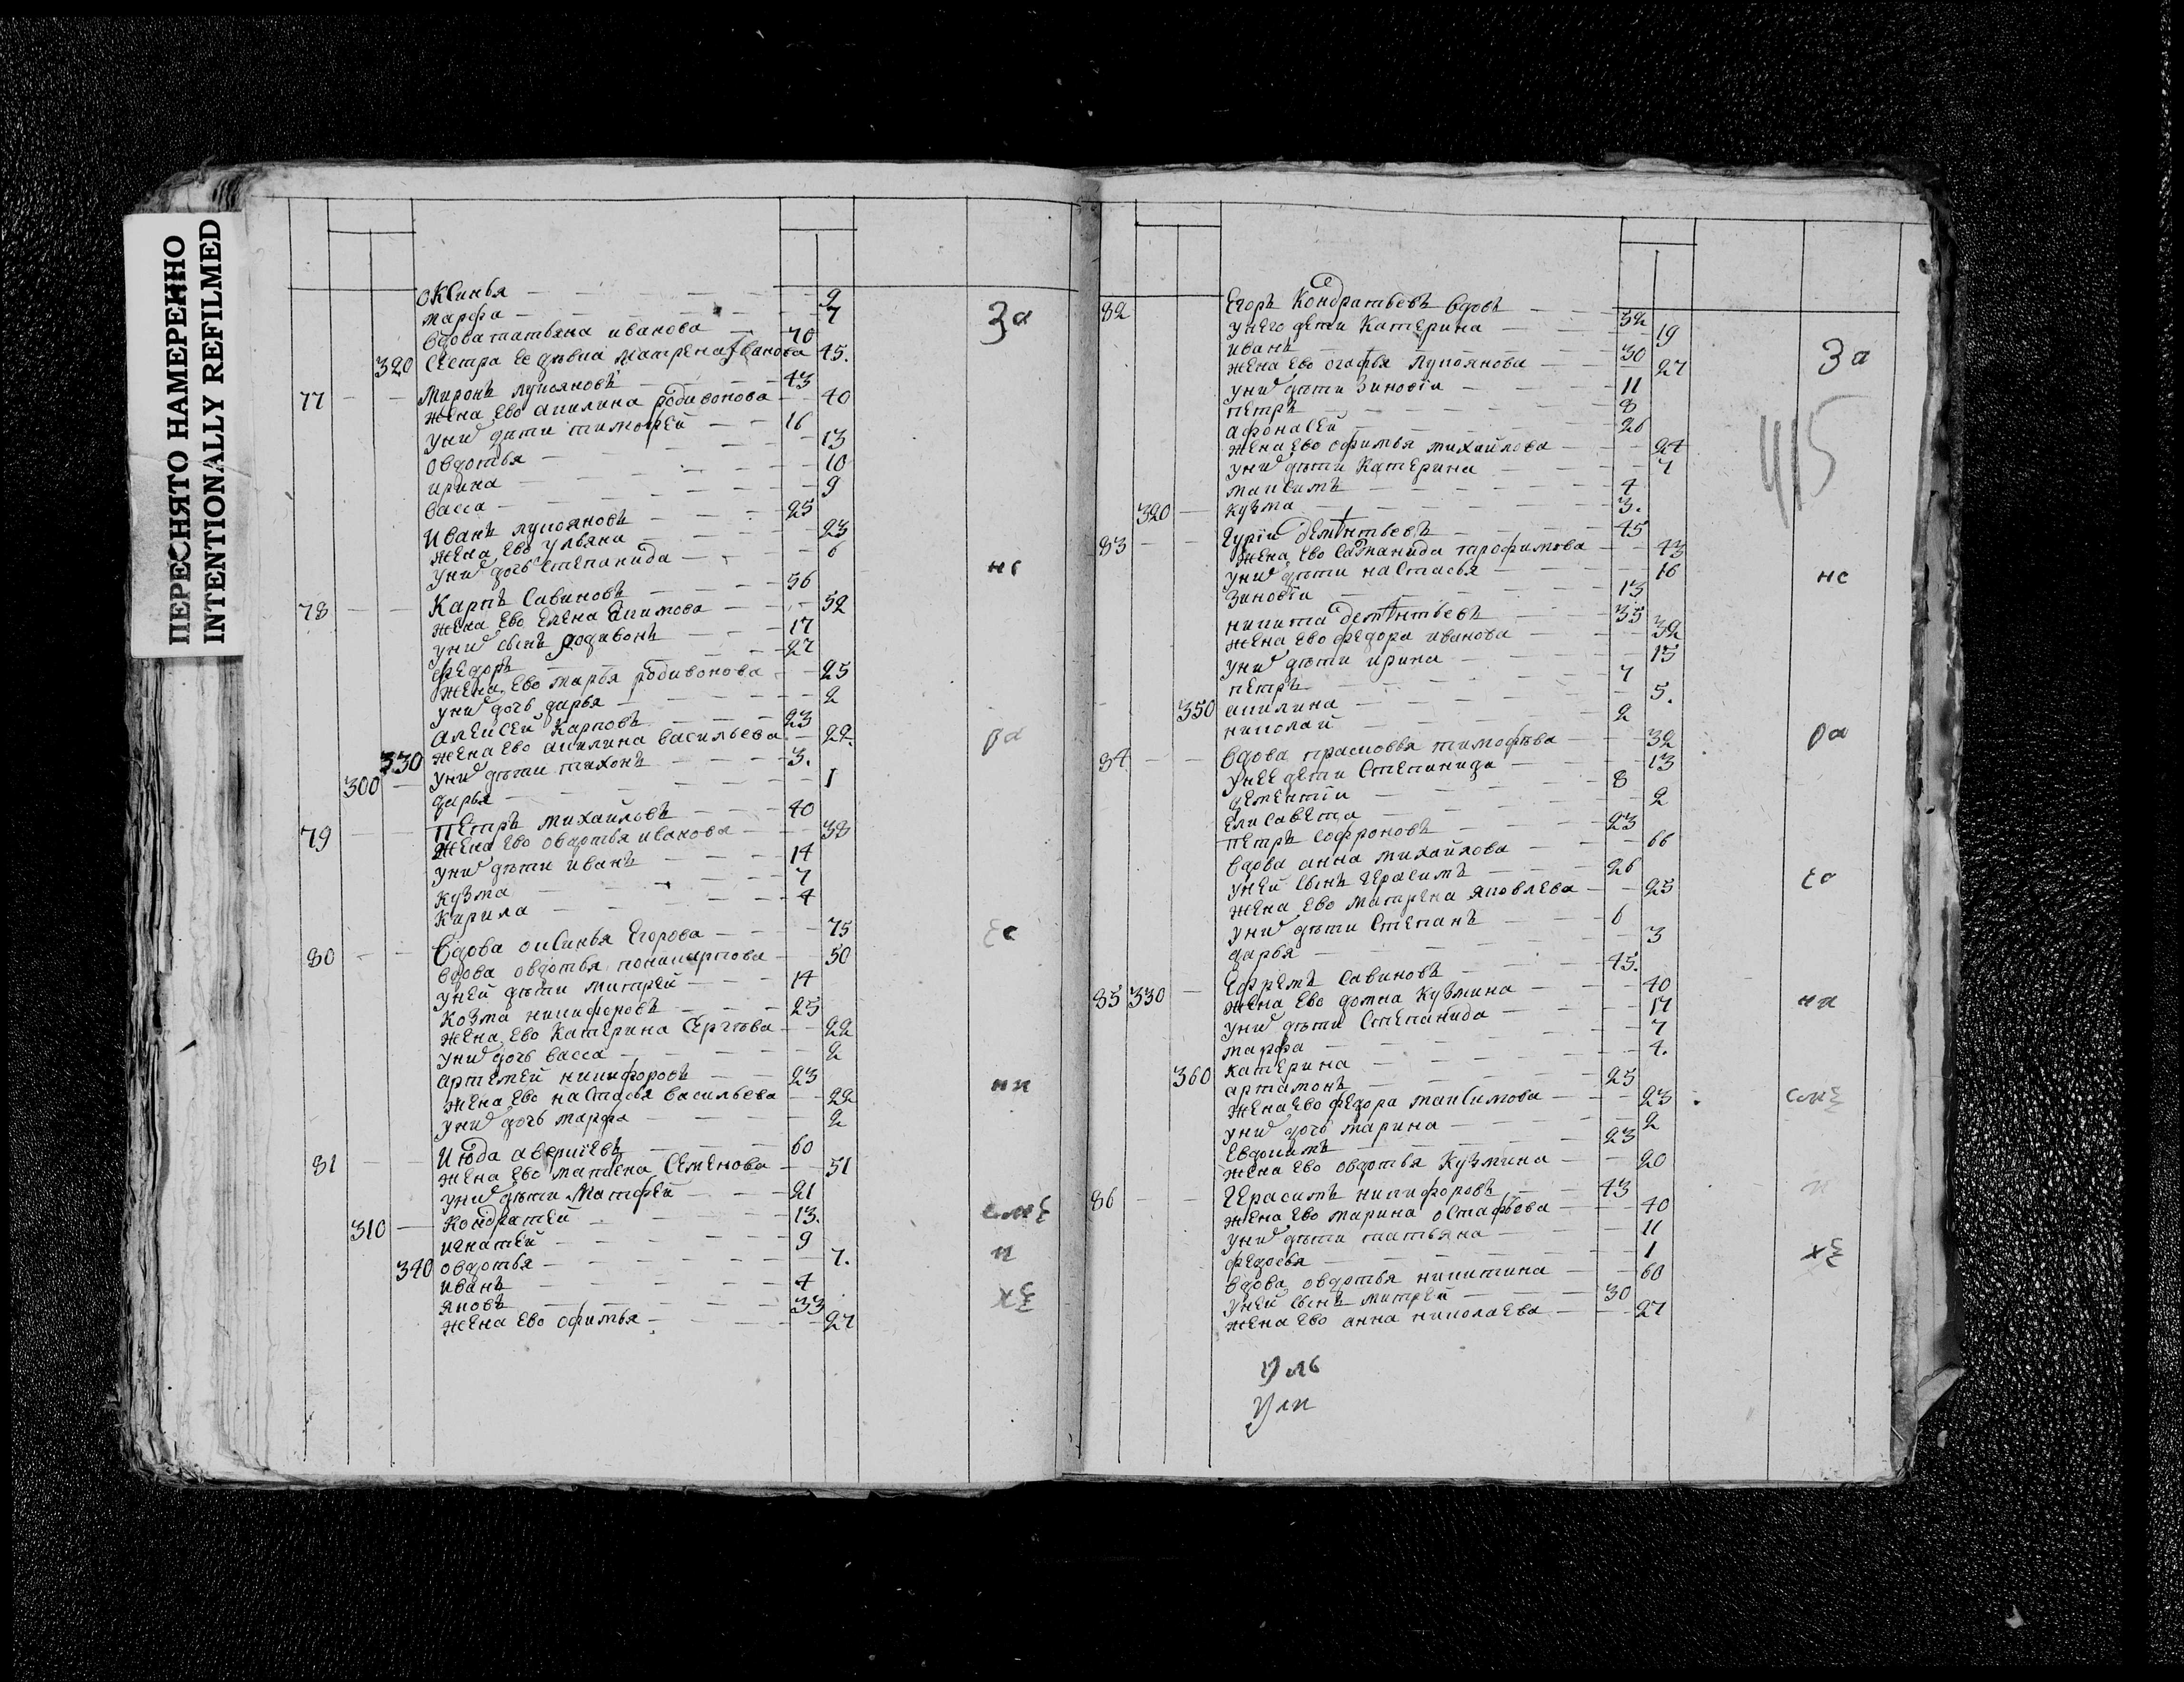 ПЕРЕСНЯТО НАМЕРЕННО
INTENTIONALLY REFILMED
оксинья 9
марфа 7
вдова татьяна иванова 70
320 сестра ее девка матрена иванова 45.
77 Миронъ лукояновъ 43
жена ево акилина родивонова 40
у них дѣти тимофей 16
овдотья 13
ирина 10
васса 9
Иванъ лукояновъ 25
жена ево ульяна 23
у них дочь степанида 6
78 Карпъ Савиновъ 56
жена ево елена екимова 52
у них сынъ родивонъ 17
федоръ 27
жена ево марья родивонова 25
у них дочь дарья 2
алексей Карповъ 23
330 жена ево акилина васильева 22.
300 у них дѣти тихонъ 3.
дарья 1
79 Петръ михайловъ 40
жена ево овдотья иванова 38
у них дѣти иванъ 14
кузма 7
карила 4
80 Вдова оксинья Егорова 75
вдова овдотья 50
у ней дѣти митрей 14
козма никифоровъ 25
жена ево катерина Сергѣева 22
у них дочь васса 2
артемей никифоровъ 23
жена ево настасья васильева 22
у них дочь марфа 2
81 Июда аверкиевъ 60
жена ево матрена Семенова 51
у них дѣти Матфей 21
310 кондратей 13.
игнатей 9
340 овдотья 7.
иванъ 4
яковъ 33
жена ево офимья 27
За
нс
ра
ес
нк
смѯ
п
хѯ
82 Егоръ Кондратьевъ вдовъ 52
у него дети Катерина 19
иванъ 30
жена ево огафья лукоянова 27
у них дѣти Зиновѣи 11
петръ 8
афонасей 26
жена ево офимья михайлова 24
у них дѣти Катерина 7
максимъ 4
320 кузма 3.
83 Гурiи Дементьевъ 45
жена ево саманида трофимова 43
у них дѣти настасья 16
зиновѣи 13
никита дементьевъ 35
жена ево федора иванова 32
у них дѣти ирина 15
петръ 7
350 акилина 5.
николай 2
84. Вдова прасковья тимофѣева 32
у нее дети Степанида 13
дементiи 8
елисавета 2
петръ софроновъ 23
вдова анна михайлова 66
у ней сынъ Герасимъ 26
жена ево матрена яковлева 25
у них дѣти Степанъ 6
дарья 3
85 330 Ефремъ Савиновъ 45.
жена ево домна Кузмина 40
у них дѣти Степанида 17
марфа 7
360 катерина 4.
артамонъ 25
жена ево федора максимова 23
у них дочь марина 2
Евдокимъ 23
жена ево овдотья Кузмина 20
86 Герасимъ никифоровъ 43
жена ево марина остафьева 40
у них дѣти татьяна 11
федосья 1
вдова овдотья никитина 60
у ней сынъ митрей 30
жена ево анна николаева 27
За
415
нс
ра
ес
нк
смѯ
п
хѯ